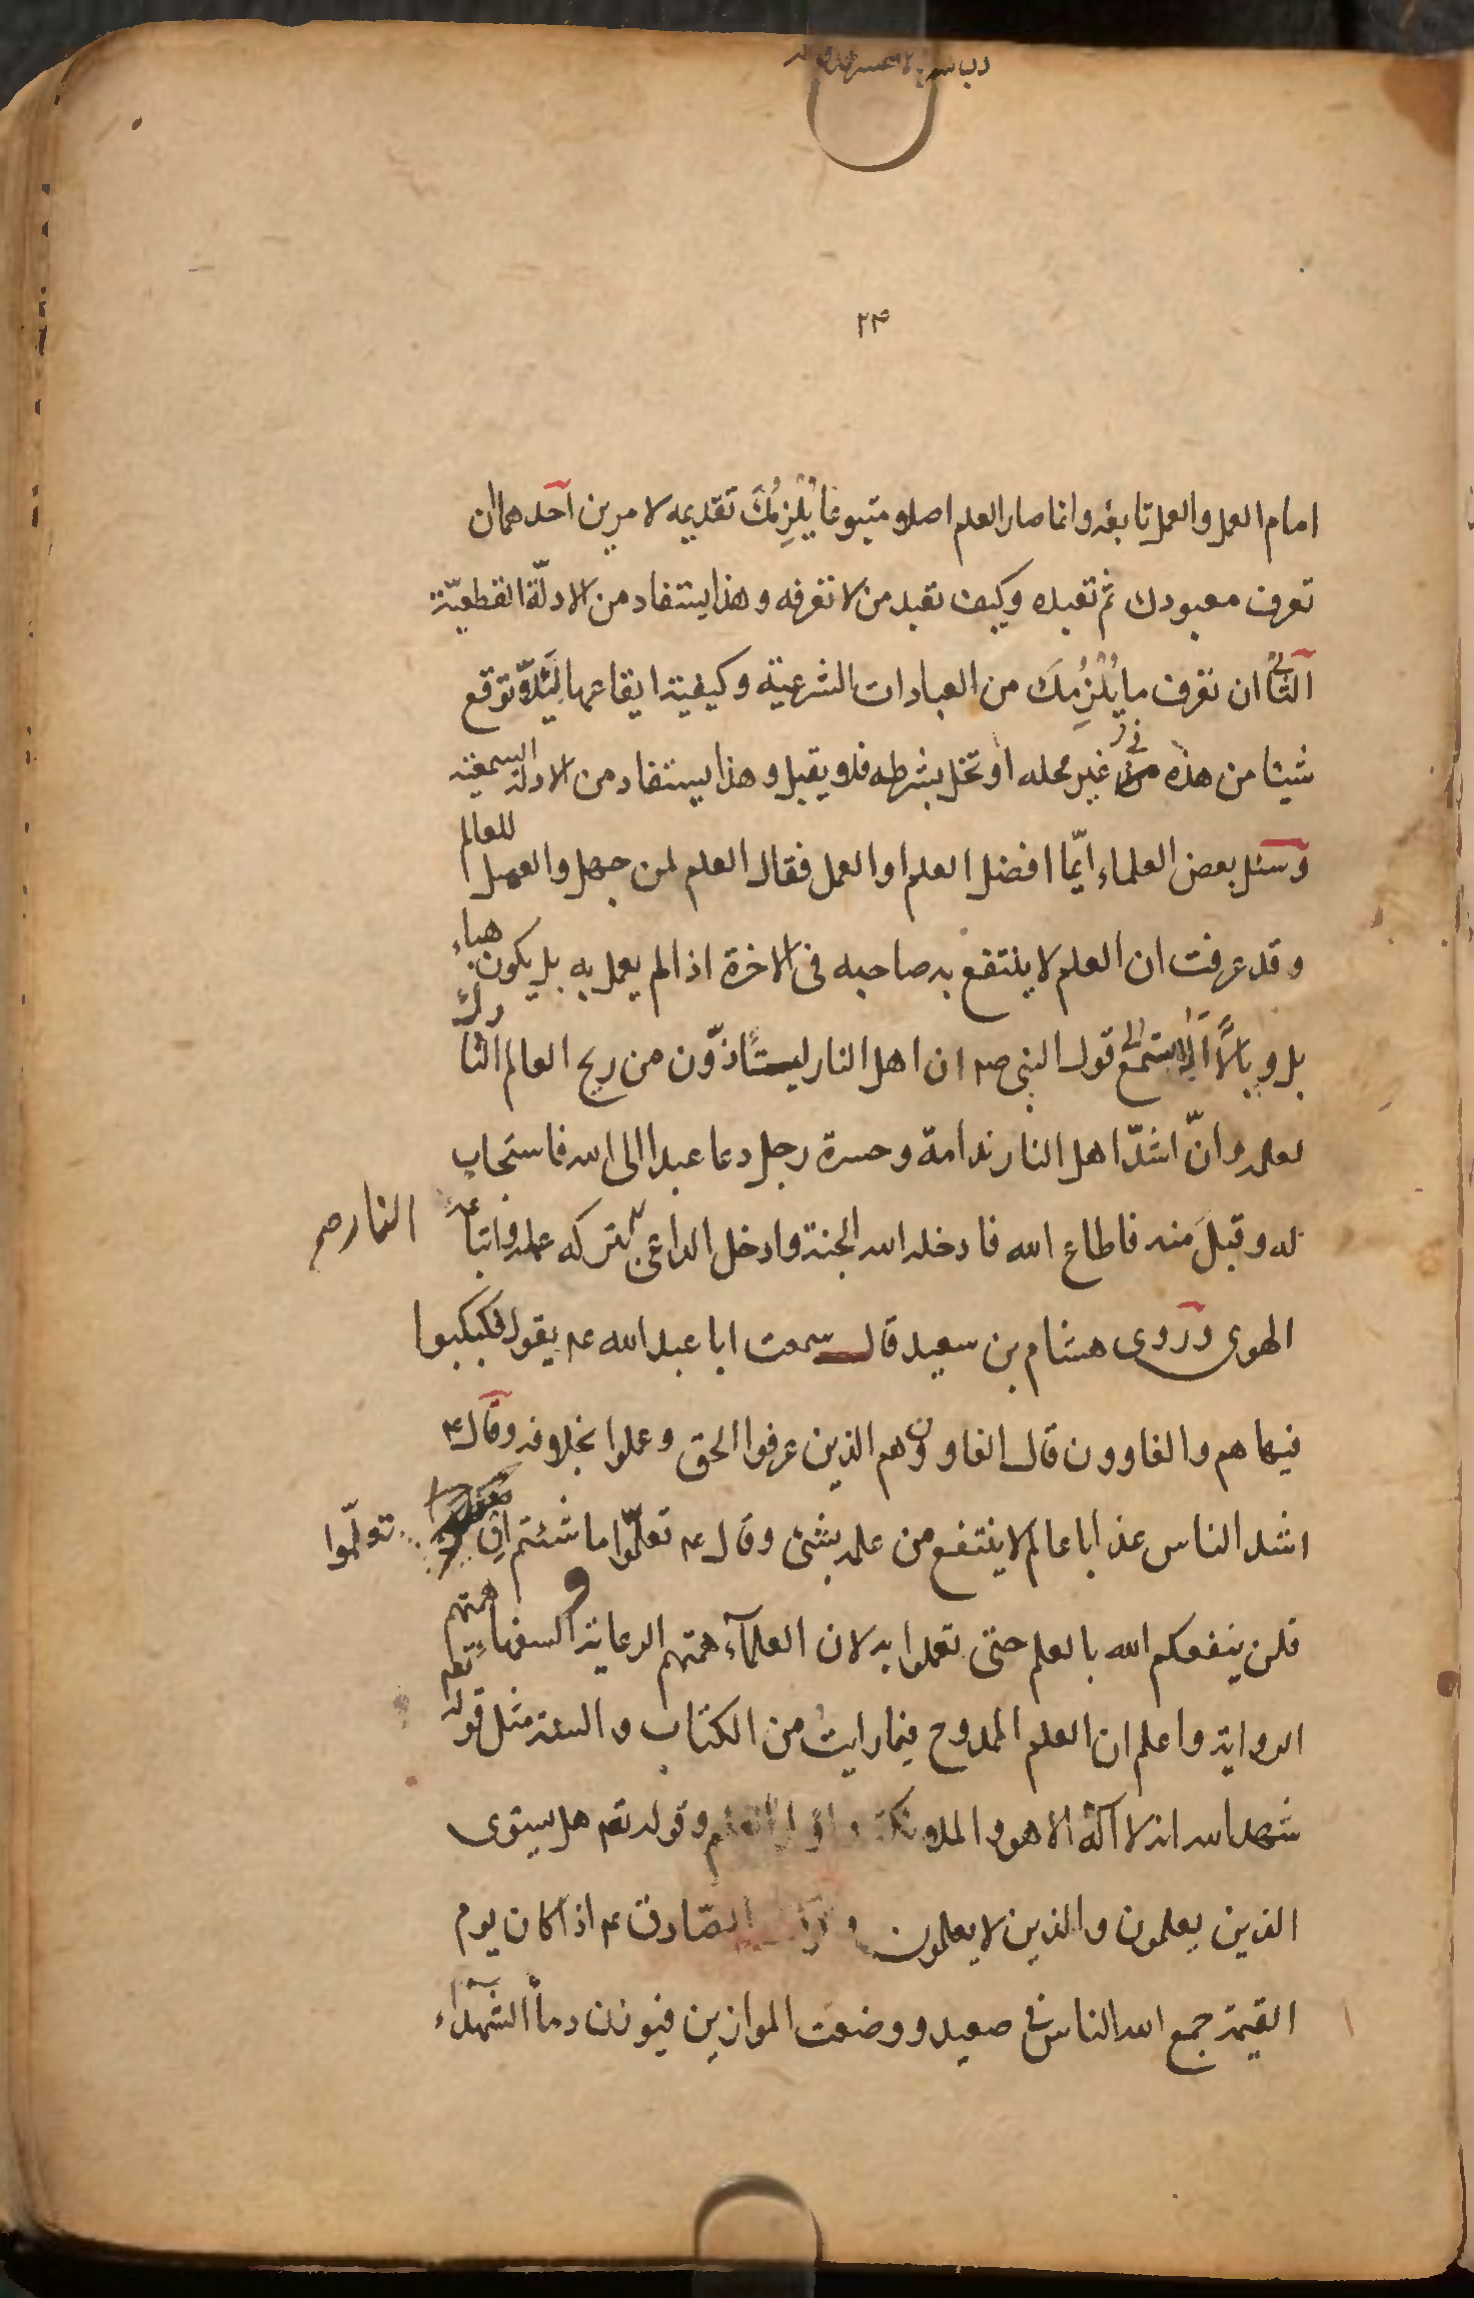 ٢۴
امام العمل والعمل تابعه وانما صار العلم اصلا ومتبوعا يلزمك تقديمه لامرين احدهما ان
تعرف معبودك ثم تعبده وكيف تعبد من لا تعرفه وهذا يستفاد من الادلّة القطعيّة
الثانى ان تعرف ما يلزمك من العبادات الشرعية وكيفية ايقاعها لئلا توقع
شيئا من هذه فى غير محله او تخل بشرطه فلا يقبل وهذا يستفاد من الادلة السمعية
وسئل بعض العلماء ايّما افضل العلم او العمل فقال العلم لمن جهل والعمل للعالم
وقد عرفت ان العلم لا ينتفع به صاحبه فى الاخرة اذا لم يعمل به بل يكون هباء
بل وبالًا الا يستمع الى قول النبى صم ان اهل النار ليتاذّون من ريح العالم التارك
لعلمه وانّ اشدّ اهل النار ندامة وحسرة رجل دعا عبدا الى الله فاستجاب
له وقبل منه فاطاع الله فادخله الله الجنة وادخل الداعى النار صح بتركه علمه واتباعه
الهوى وروى هشام بن سعيد قال سمعت ابا عبد الله عم يقول فكبكبوا
فيها هم والغاوون قال الغاوون هم الذين عرفوا الحق وعملوا بخلافه وقال ع
اشد الناس عذابا عالم لا ينتفع من علمه بشئ وقال ع تعلّموا ما شئتم ان تعلّموا
فلن ينفعكم الله بالعلم حتى تعملوا به لان العلمآء همتهم الرعاية والسفهاء همتهم
الرواية واعلم ان العلم الممدوح فيما رايت من الكتاب والسنة مثل قوله تعم
شهد الله انه لا آله الا هو والملائكة واولوا العلم وقوله تعم هل يستوى
الذين يعلمون والذين لا يعلمون وقال الصّادق ع اذا كان يوم
القيمة جمع الله الناس فى صعيد ووضعت الموازين فيوزن دماء الشهدآء